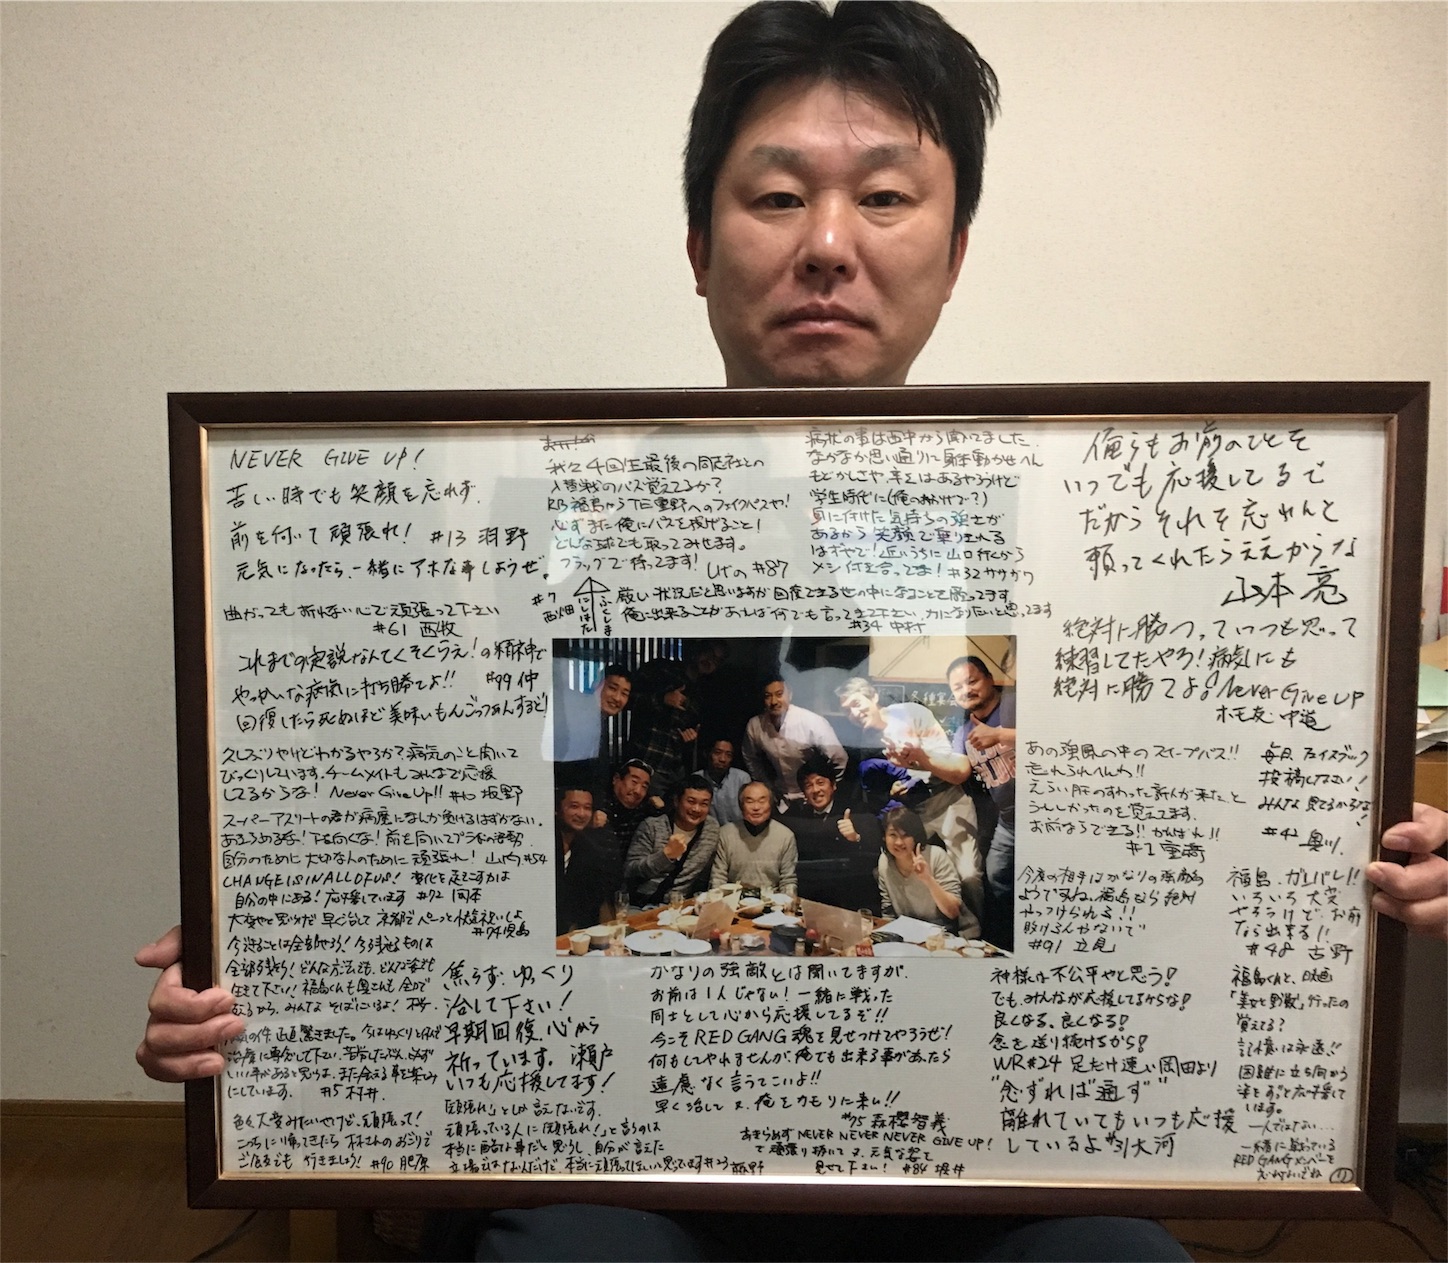 NEVER GIVE UP!
苦しい時でも笑顔を忘れず、
前を向いて頑張れ! #13 羽野
元気になったら、一緒にアホな事しようぜ。
曲がっても折れない心で頑張って下さい
#61 西牧
これまでの定説なんてくそくらえ!の精神で
やっかいな病気に打ち勝てよ!! #99 仲
回復したら死ぬほど美味いもんごっつぁんするど!
久しぶりやけどわかるやろか?病気のこと聞いて
びっくりしています。チームメイトもみんなで応援
してるからな! Never Give Up!! #10 坂野
スーパーアスリートの君が病魔になんか負けるはずがない。
あきらめるな! 下を向くな! 前を向いて
自分のために 大切な人のために 頑張れ! 山内 #54
CHANGE IS IN ALL OF US! 変化を起こす力は
自分の中にある! 応援しています #72 岡本
大変やと思うけど 早く治して 京都で
#74 児島
今やることは全部やろう!
全部残そう! どんな方法でも、どんな姿でも
生きて下さい! 福島くんも奥さんも全力で
みんな そばにいるよ!
正直、驚きました。今はゆっくりと休んで
治療に専念して下さい。
にしています。 #5 村井
色々大変みたいやけど、頑張って!
こっちに帰ってきたら
行きましょう! #90 肥原
我々4回生最後の同志社との
入替戦のパス覚えてるか?
RB福島からTE重野へのフェイクパスや!
必ずまた俺にパスを投げること!
どんな球でも取ってみせます。
フラッグで待ってます! #87
#7
西畑
にしはた
ふくしま
厳しい状況だと思いますが回復できる世の中になることを願ってます。
俺に出来ることがあれば何でも言ってきて下さい 力になりたいと思ってます
#34 中村
病状の事は西中から聞いてました。
なかなか思い通りに身体動かせへん
もどかしさや、辛さはあるやろうけど
学生時代に(俺のおかげで?)
身に付けた気持ちの強さが
あるから 笑顔で乗り切れる
はずやで! 近いうちに山口行くから
メシ付き合ってよ! #32 ササガワ
俺らもお前のひとを
いつでも応援してるで
だからそれを忘れんと
頼ってくれたらええからな
山本 亮
絶対に勝つっていつも思って
練習してたやろ! 病気にも
絶対に勝てよ! Never Give UP
ホモ友 中道
あの強風の中のスイープパス!!
忘れられへんわ!!
えらい肝のすわった新人が来た、と
うれしかったのを覚えてます。
お前ならできる!! がんばれ!!
#1 重崎
毎日 フェイスブック
投稿して下さい!
みんな 見てるからな!
#42 奥川
今度の相手はかなりの強敵の
ようですね。福島なら絶対
やっつけられる!!
負けるんやないで
#91 立見
福島、ガンバレ!!
いろいろ大変
やろうけど、お前
なら出来る!!
#48 古野
焦らず ゆっくり
治して下さい!
早期回復、心から
祈っています。 瀬戸
いつも応援してます!
頑張れ」としか言えないです。
頑張っている人に「頑張れ!」と言うのは
本当に酷な事だと思うし、自分が言えた
立場ではないんだけど、本当に頑張ってほしいと思ってます #23 萩野
かなりの強敵とは聞いてますが、
お前は1人じゃない! 一緒に戦った
同士として心から応援してるぞ!!
今こそRED GANG魂を見せつけてやろうぜ!
何もしてやれませんが、俺でも出来る事があったら
遠慮なく言うてこいよ!!
早く治して 又、俺をカモりに来い!!
#75 森櫻 智義
あきらめず NEVER NEVER NEVER GIVE UP!
で 頑張り抜いて 又、元気な姿を
見せて下さい! #84 堀井
神様は不公平やと思う!
でも、みんなが応援してるからな!
良くなる、良くなる!
念を送り続けるから!
WR#24 足だけ速い岡田より
"念ずれば通ず"
離れていてもいつも応援
しているよ #31 大河
福島くんと、映画
「美女と野獣」行ったの
覚えてる?
記憶は永遠!!
困難に立ち向かう
姿をずっと応援して
います。
一人ではない…
一緒に戦っている
RED GANGメンバーを
忘れないでね